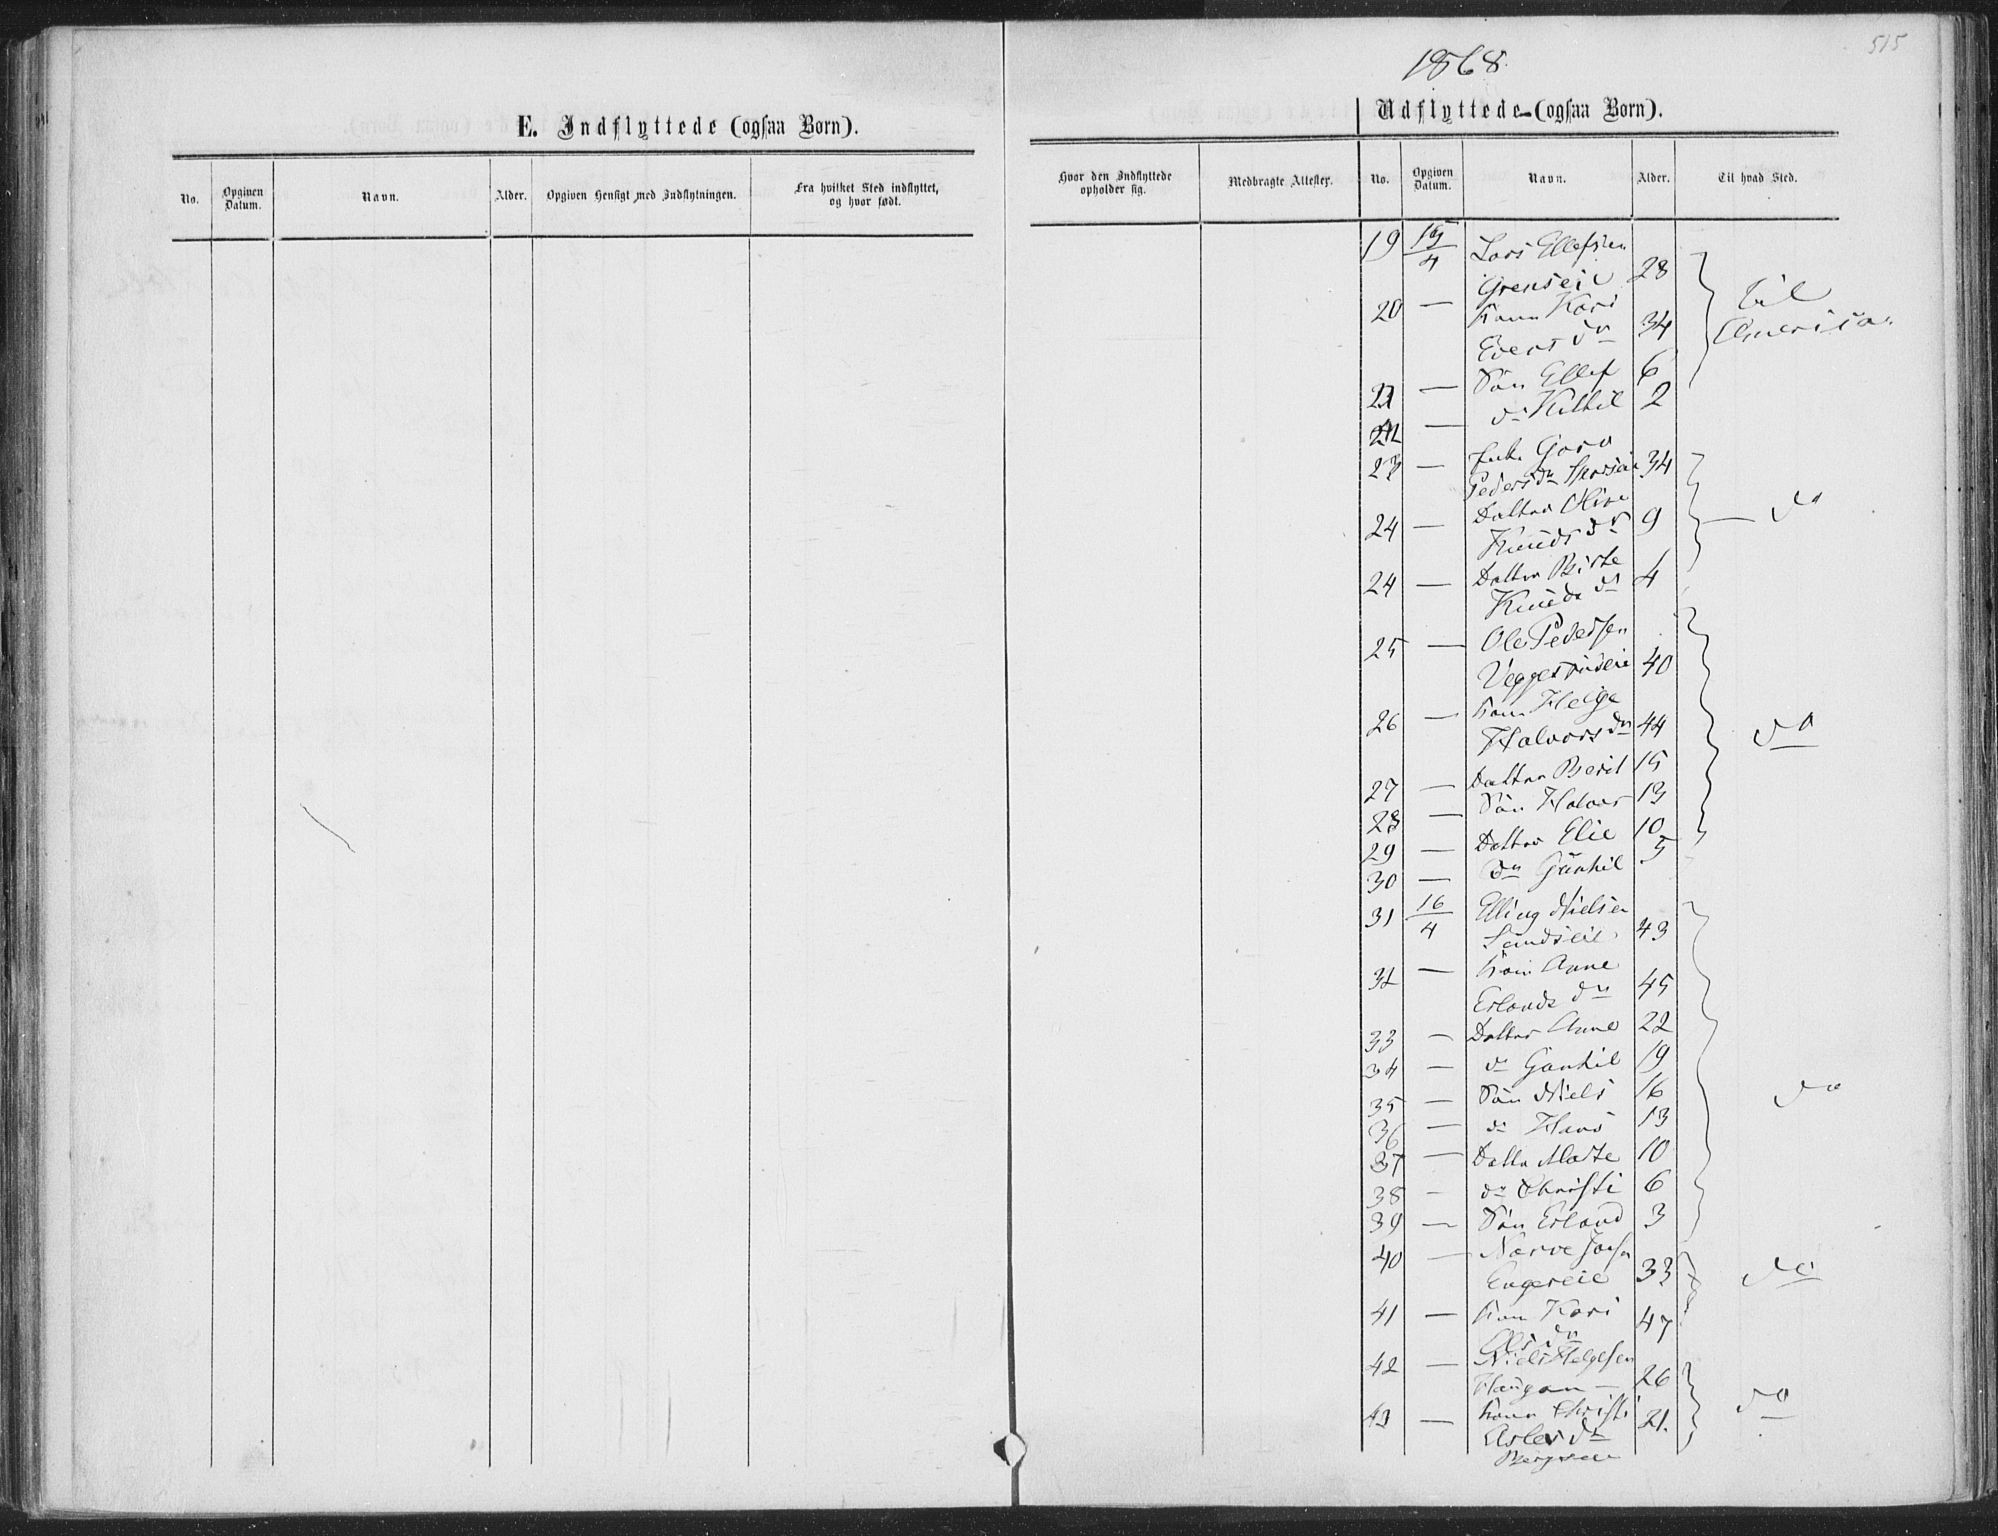 515
1868
E. Indflyttede (ogsaa Børn).
Udflyttede (ogsaa Børn).
No. Opgiven Datum. Navn. Alder. Opgiven Hensigt med Indflytningen. Fra hvilket Sted indflyttet, og hvor født.
Hvor den Indflyttede opholder sig. Medbragte Attester. No. Opgiven Datum. Navn. Alder. Til hvad Sted.
19 15/4 Lars Ellefsen
28 til
20 — Kone Kari
34 America
21 — Søn Ellef 6
22 — do Kittil 2
23 — Enke Goro
Pedersdr 34
24 — Datter Olive
Knudsdr 9 do
24 — Datter Birte
Knudsdr 4
25 — Ole Pedersen
40
26 — Kone Helge
Halvorsdr 44 do
27 — Datter Berit 15
28 — Søn Halvor 13
29 — Datter Elie 10
30 — do Gunhil 5
31 16/4 Elling Nielsen
43
32 — Kone Anne
Erlandsdr 45
33 — Datter Anne 22
34 — do Gunhil 19
35 — Søn Niels 16 do
36 — do Hans 13
37 — Datter Marte 10
38 — do Christi 6
39 — Søn Erland 3
40 — Narve
Engereie 33 do
41 — Kone Kari
Olsdr 47
42 — Niels Helgesen
Haugan — 26
43 — Kone Christi do
Aslesdr 21.